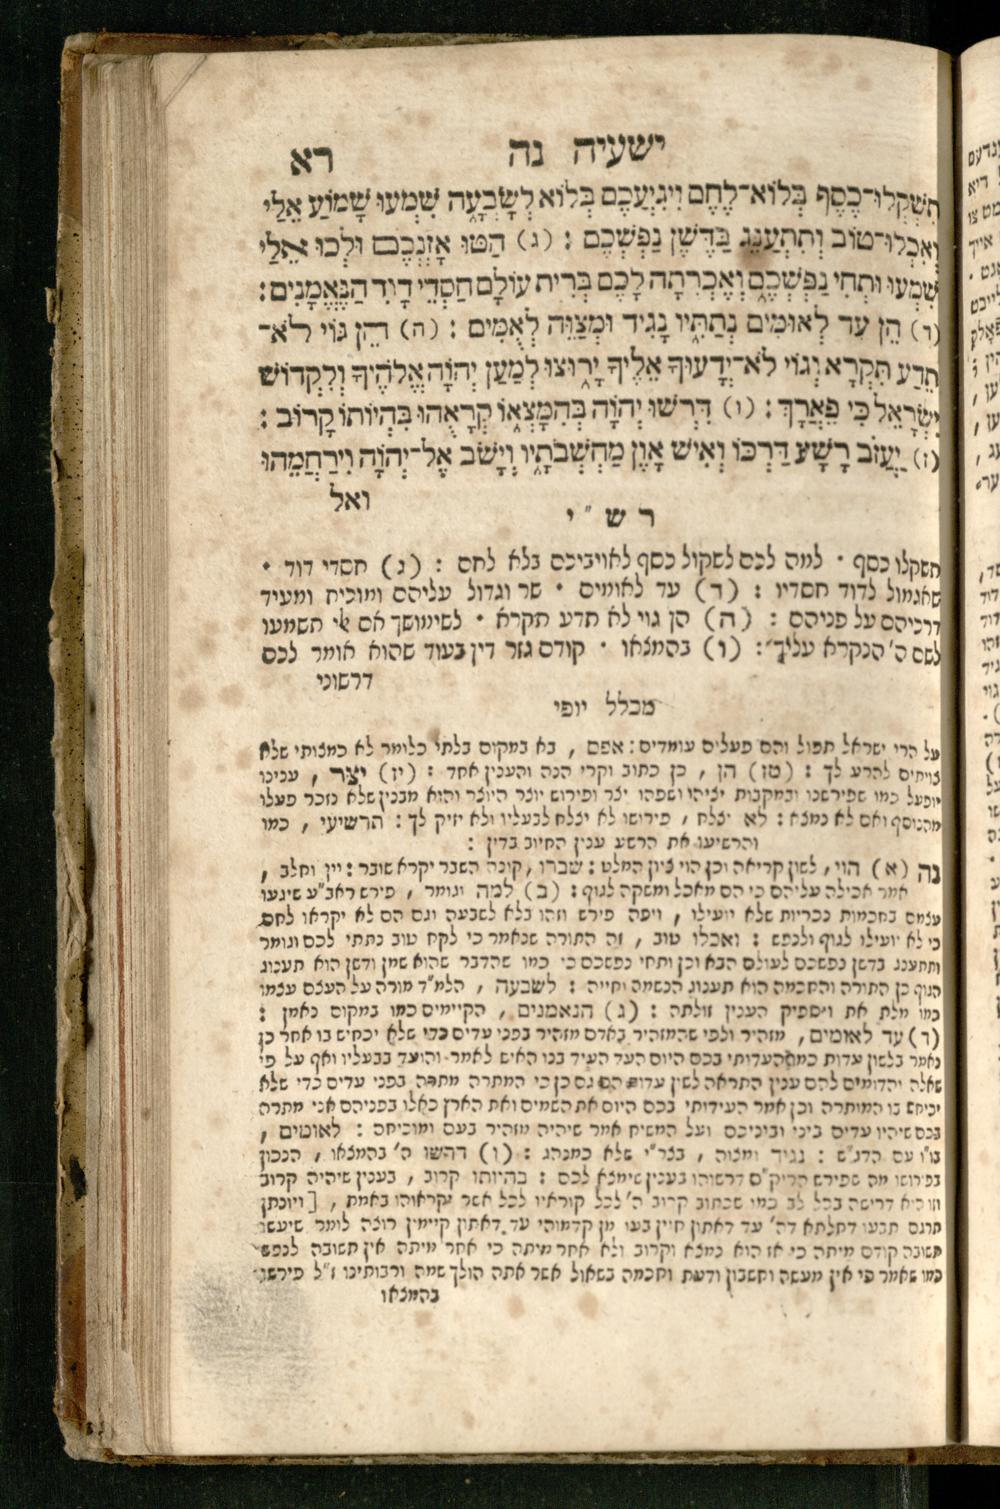 ישעיה נה רא
תִשְׁקְלוּ־כֶסֶף בְּלוֹא־לֶחֶם וִיגִיעֲכֶם בְּלוֹא לְשָׂבְעָה שִׁמְעוּ שָׁמוֹעַ אֵלַי
וְאִכְלוּ־טוֹב וְתִתְעַנַּג בַּדֶּשֶׁן נַפְשְׁכֶם : (ג) הַטּוּ אָזְנְכֶם וּלְכוּ אֵלַי
שִׁמְעוּ וּתְחִי נַפְשְׁכֶם וְאֶכְרְתָה לָכֶם בְּרִית עוֹלָם חַסְדֵי דָוִד הַנֶּאֱמָנִים :
(ד) הֵן עֵד לְאוּמִּים נְתַתִּיו נָגִיד וּמְצַוֵּה לְאֻמִּים : (ה) הֵן גּוֹי לֹא־
תֵדַע תִּקְרָא וְגוֹי לֹא־יְדָעוּךָ אֵלֶיךָ יָרוּצוּ לְמַעַן יְהוָֹה אֱלֹהֶיךָ וְלִקְדוֹשׁ
יִשְׂרָאֵל כִּי פֵאֲרָךְ : (ו) דִּרְשׁוּ יְהוָֹה בְּהִמָּצְאוֹ קְרָאֻהוּ בִּהְיוֹתוֹ קָרוֹב :
(ז) יַעֲזֹב רָשָׁע דַּרְכּוֹ וְאִישׁ אָוֶן מַחְשְׁבֹתָיו וְיָשֹׁב אֶל־יְהוָֹה וִירַחֲמֵהוּ
ואל
ר ש ״ י
תשקלו כסף · למה לכם לשקול כסף לאויביכם בלא לחם : (ג) חסדי דוד ·
שאגמול לדוד חסדיו : (ד) עד לאומים · שר וגדול עליהם ומוכיח ומעיד
דרכיהם על פניהם : (ה) הן גוי לא תדע תקרא · לשימושך אם לי תשמעו
לשם ה' הנקרא עליך : (ו) בהמצאו · קודם גזר דין בעוד שהוא אומר לכם
דרשוני
מכלל יופי
על הרי ישראל תפול והם פעלים עומדים : אפס , בא במקום בלתי כלומר לא כמצותי שלא
צויתים להרע לך : (טז) הן , כן כתוב וקרי הנה והענין אחד : (יז) יצר , ענינו
יופעל כמו שפירשנו ובמקבות יציהו ושפהו יצר ופירוש יוצר היוצר והוא מבנין שלא נזכר פעלו
מהנוסף ואם לא נמצא : לא יצלח , פירושו לא יצלח לבעליו ולא יזיק לך : תרשיעי , כמו
והרשיעו את הרשע ענין החיוב בדין :
נה (א) הוי , לשון קריאה וכן הוי ציון המלט : שברו , קונה השבר יקרא שובר : יין וחלב ,
אמר אכילה עליהם כי הם מאכל ומשקה לגוף : (ב) למה וגומר , פירש ראב"ע שיגעו
עצמם בחכמות נכריות שלא יועילו , ויפה פירש וזהו בלא לשבעה וגם הם לא יקראו לחם
כי לא יועילו לגוף ולנפש : ואכלו טוב , זה התורה שנאמר כי לקח טוב נתתי לכם וגומר
ותתענג בדשן נפשכם לעולם הבא וכן ותחי נפשכם כי כמו שהדבר שהוא שמן ודשן הוא תענוג
הגוף כן התורה והחכמה הוא תענוג הנשמה וחייה : לשבעה , הלמ"ד מורה על העצם עצמו
כמו מלת את ויספיק הענין זולתה : (ג) הנאמנים , הקיימים כמו במקום נאמן :
(ד) עד לאומים , מזהיר ולפי שהמזהיר באדם מזהיר בפני עדים כדי שלא יכחיש בו אחר כן
נאמר בלשון עדות כמו העדותי בכם היום העד העיד בנו האיש לאמר והועד בבעליו ואף על פי
שאלה יהדומים להם ענין התראה לשון עדות הם גם כן כי המתרה מתרה בפני עדים כדי שלא
יכחש בו המותרה וכן אמר העידותי בכם היום את השמים ואת הארץ כאלו בפניהם אני מתרה
בכם שיהיו עדים ביני וביניכם ועל המשיח אמר שיהיה מזהיר בעם ומוכיחה : לאומים ,
בו"ו עם הדג"ש : נגיד ומצוה , בצר"י שלא כמנהג : (ו) דרשו ה' בהמצאו , הנכון
בפירושו מה שפירש הריק"ם דרשוהו בענין שימצא לכם : בהיותו קרוב , בענין שיהיה קרוב
וזו היא דרישה בכל לב כמו שכתוב קרוב ה' לכל קוראיו לכל אשר יקראוהו באמת , [ויונתן
תרגם תבעו דחלתא דה' עד דאתון חיין בעו מן קדמוהי עד דאתון קיימין רוצה לומר שיעשו
תשובה קודם מיתה כי אז הוא נמצא וקרוב ולא אחר מיתה כי אחר מיתה אין תשובה לנפש
כמו שאמר כי אין מעשה וחשבון ודעת וחכמה בשאול אשר אתה הולך שמה ורבותינו ז"ל פירשו
בהמצאו